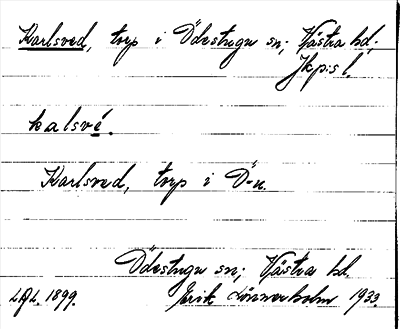 Karlsved, torp i Ödestugu sn; Västra hd;
Jkp:s l.
kalsvé.
Karlsved, torp i Ö-u.
Ödestugu sn; Västra hd.
1899. Erik Lönnerholm 1933.